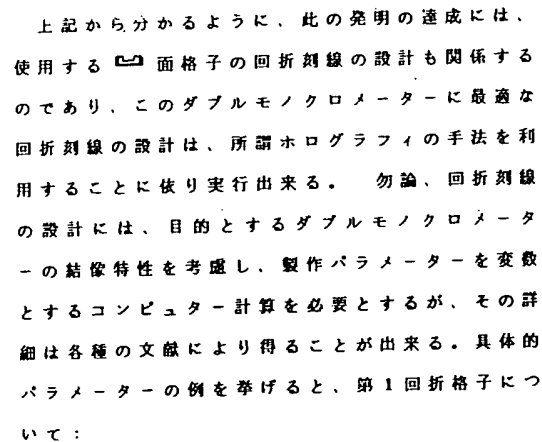 上記から分かるように、此の発明の達成には、
使用する 面格子の回折刻線の設計も関係する
のであり、このダブルモノクロメーターに最適な
回折刻線の設計は、所謂ホログラフィの手法を利
用することに依り実行出来る。 勿論、回折刻線
の設計には、目的とするダブルモノクロメータ
ーの結像特性を考慮し、製作パラメーターを変数
とするコンピュター計算を必要とするが、その詳
細は各種の文献により得ることが出来る。具体的
パラメーターの例を挙げると、第1回折格子につ
いて: